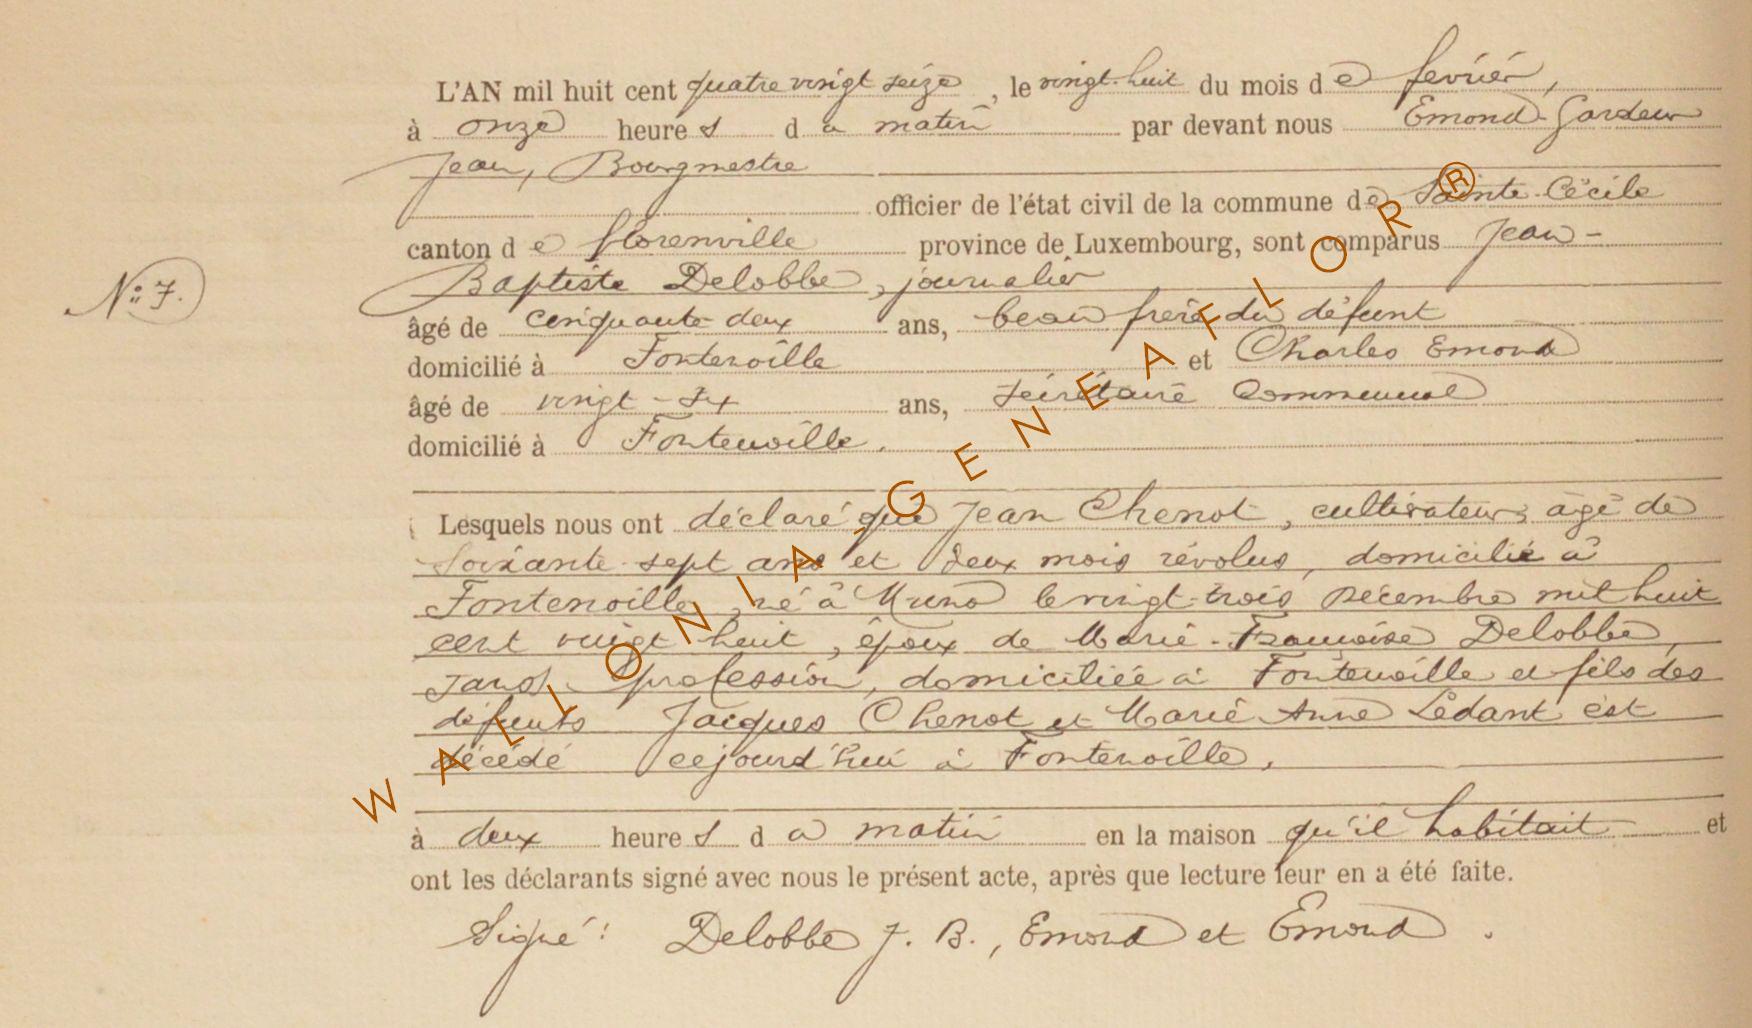 L'AN mil huit cent quatre vingt seize, le vingt-huit du mois de fevriér,
à onze heures du matin par devant nous Emond-Gardeur
Jean, Bourgmestre
officier de l'état civil de la commune de Sainte-Cécile
canton de florenville province de Luxembourg, sont comparus Jean-
Baptiste Delobbe, journalier
N° 7.
âgé de cinquante-deux ans, beau frère du défunt
domicilié à Fontenoille et Charles Emond
âgé de vingt-six ans, secrétaire Communal
domicilié à Fontenoille.
Lesquels nous ont déclaré que Jean Chenot, cultivateur, âgé de
Soixante-sept ans et deux mois révolus, domicilié à
Fontenoille, né à Muno le vingt-trois Décembre mil huit
cent vingt huit, époux de Marie-Françoise Delobbe,
sans profession, domiciliée à Fontenoille et fils des
défunts Jacques Chenot et Marie Anne Lédant est
décédé cejourd'hui à Fontenoille.
à deux heures du matin en la maison qu'il habitait et
ont les déclarants signé avec nous le présent acte, après que lecture leur en a été faite.
Signé: Delobbe J. B., Emond et Emond.
WALLONIA-GENEAFLOR®